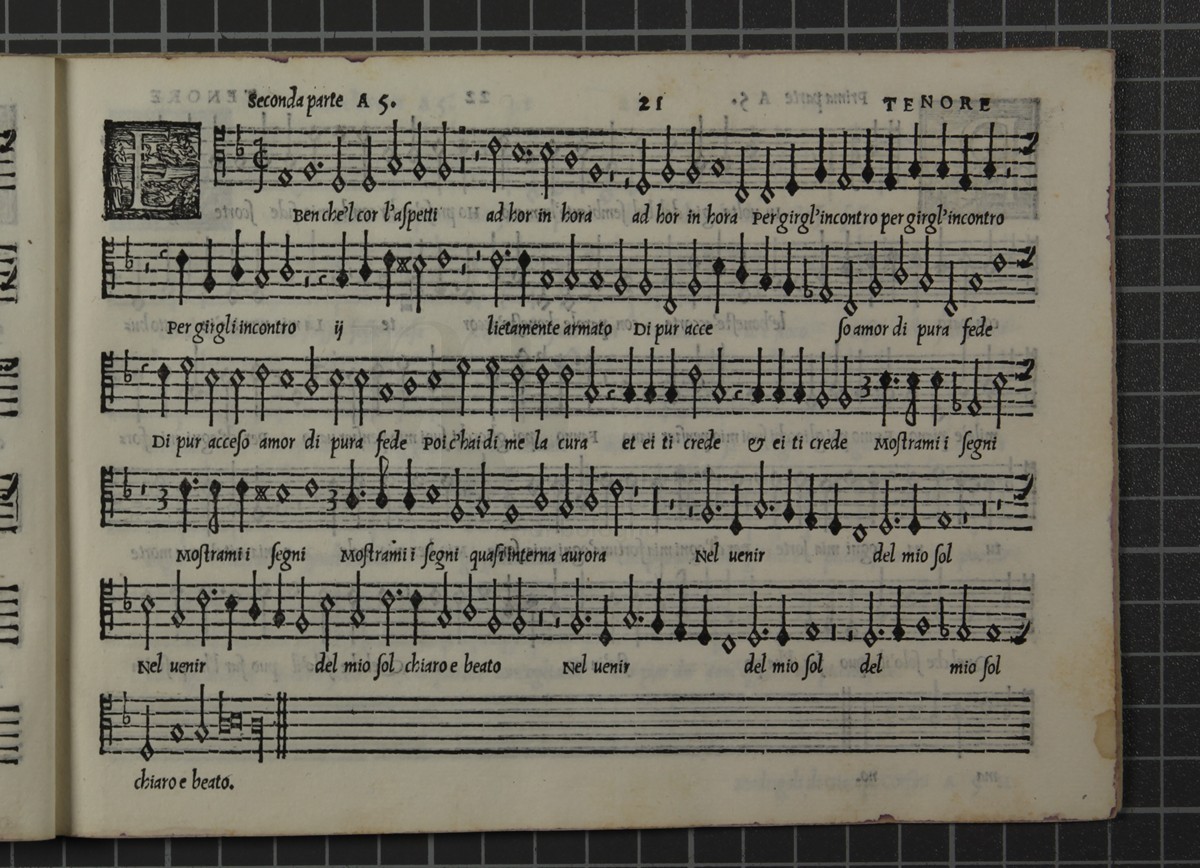 Seconda parte A 5. 21 TENORE
TE Ben che'l cor l'aſpetti ad hor in hora ad hor in hora Per girgl'incontro per girgl'incontro
Per girgli incontro ij te lietamente armato Di pur acce ſo amor di pura fede
Di pur acceſo amor di pura fede Poi c'hai di me la cura et ei ti crede & ei ti crede Moſtrami i ſegni
Moſtrami i ſegni Moſtrami i ſegni quaſi interna aurora Nel uenir del mio ſol
Nel uenir del mio ſol chiaro e beato Nel uenir del mio ſol del mio ſol
chiaro e beato.